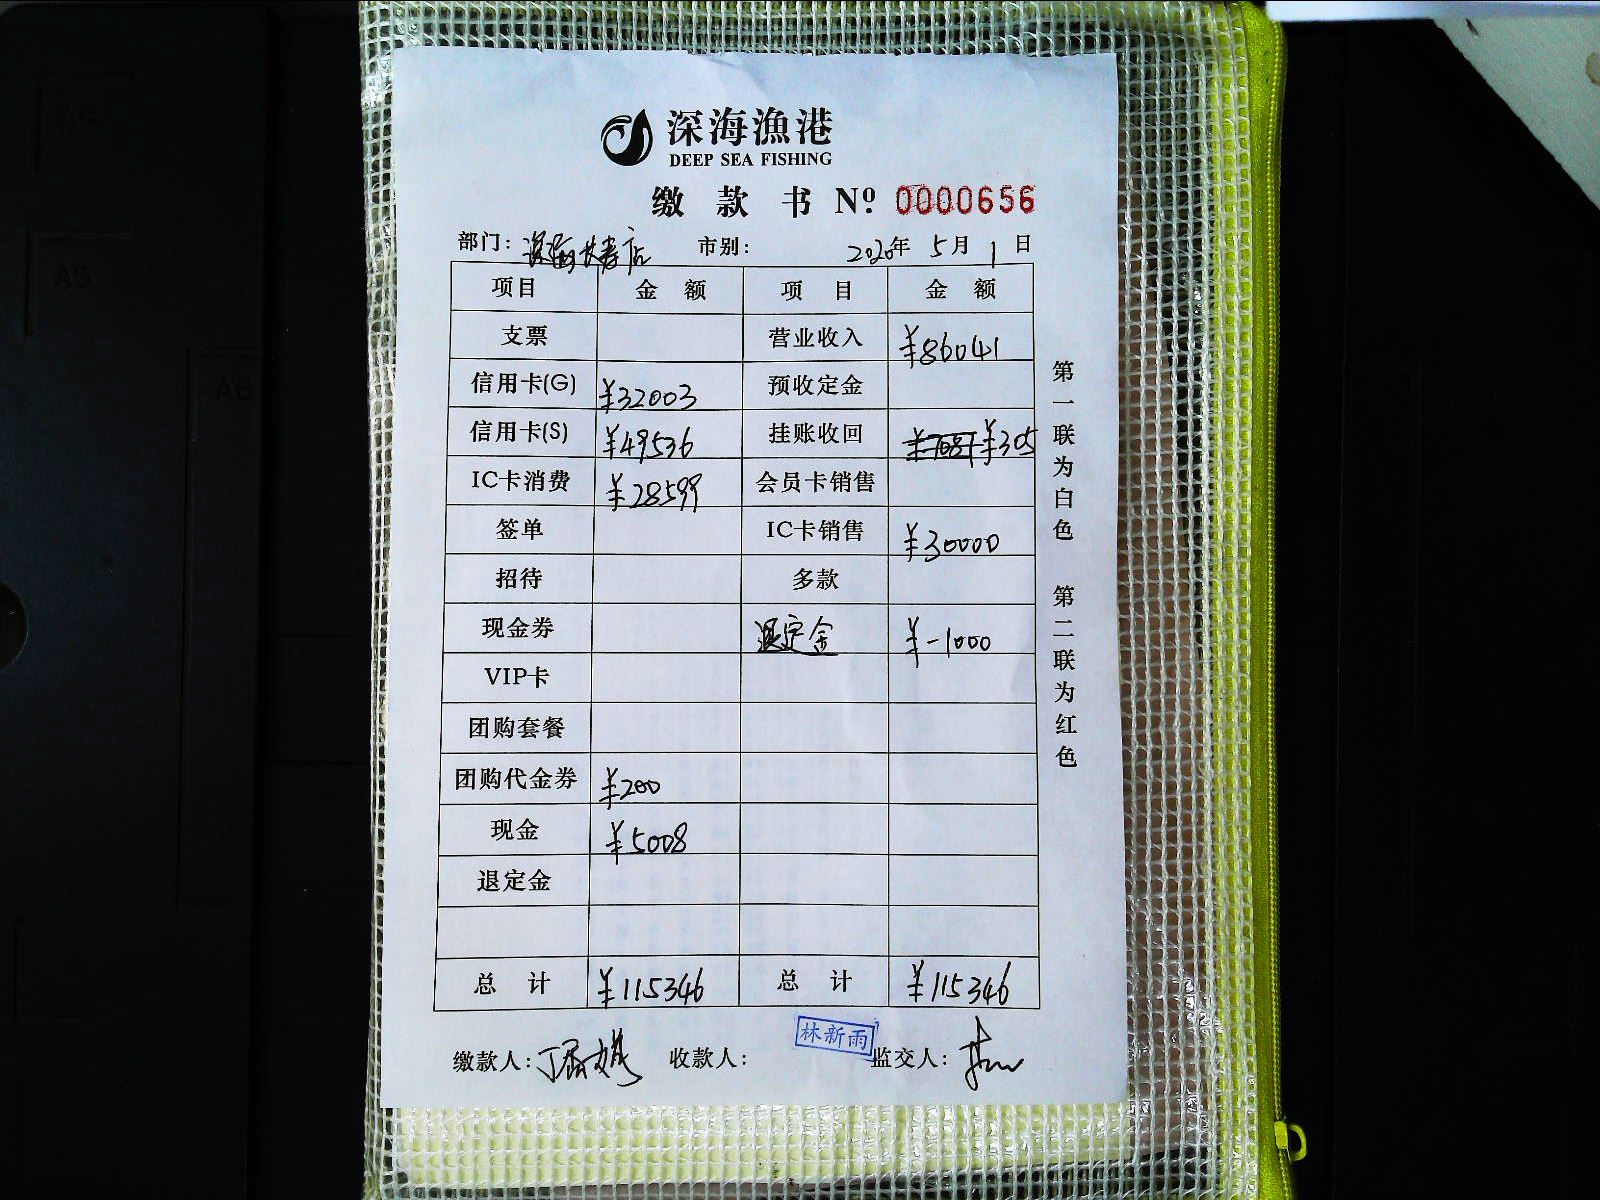 深海漁港
DEEP SEA FISHING
缴款书 Nº 0000656
部门: 深海长寿店 市别: 2020年 5月 1日
项目 金额 项目 金额
支票 营业收入 ¥86041
信用卡(G) ¥32003 预收定金
信用卡(S) ¥49536 挂账收回 ¥305
IC卡消费 ¥28599 会员卡销售
签单 IC卡销售 ¥30000
招待 多款
现金券 退定金 ¥-1000
VIP卡
团购套餐
团购代金券 ¥200
现金 ¥5008
退定金
总计 ¥115346 总计 ¥115346
缴款人: 收款人: 林新雨 监交人:
第一联为白色 第二联为红色
A5
A6